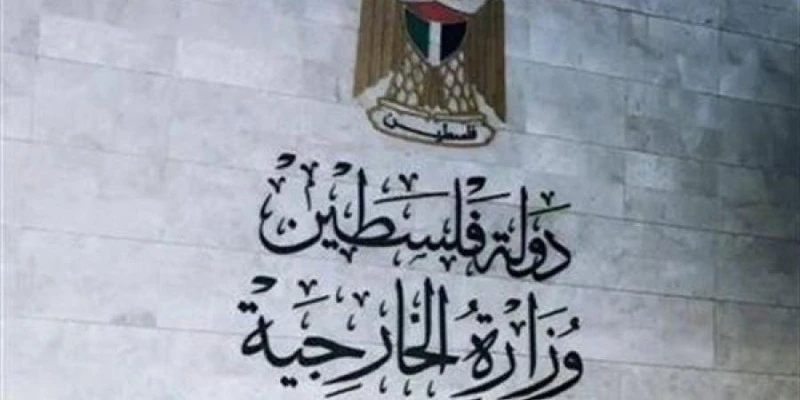 فلسطين
دَولة فَلسَطين
وُزَارةُ الخَارجيَة